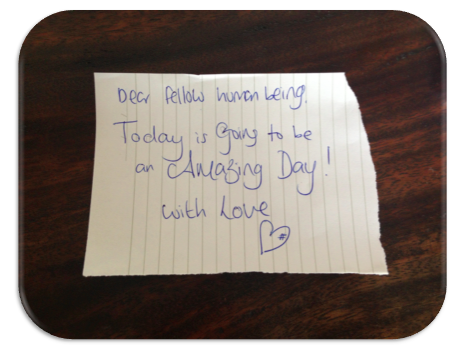 Dear Fellow human being,
Today is Going to be
an Amazing Day!
with Love